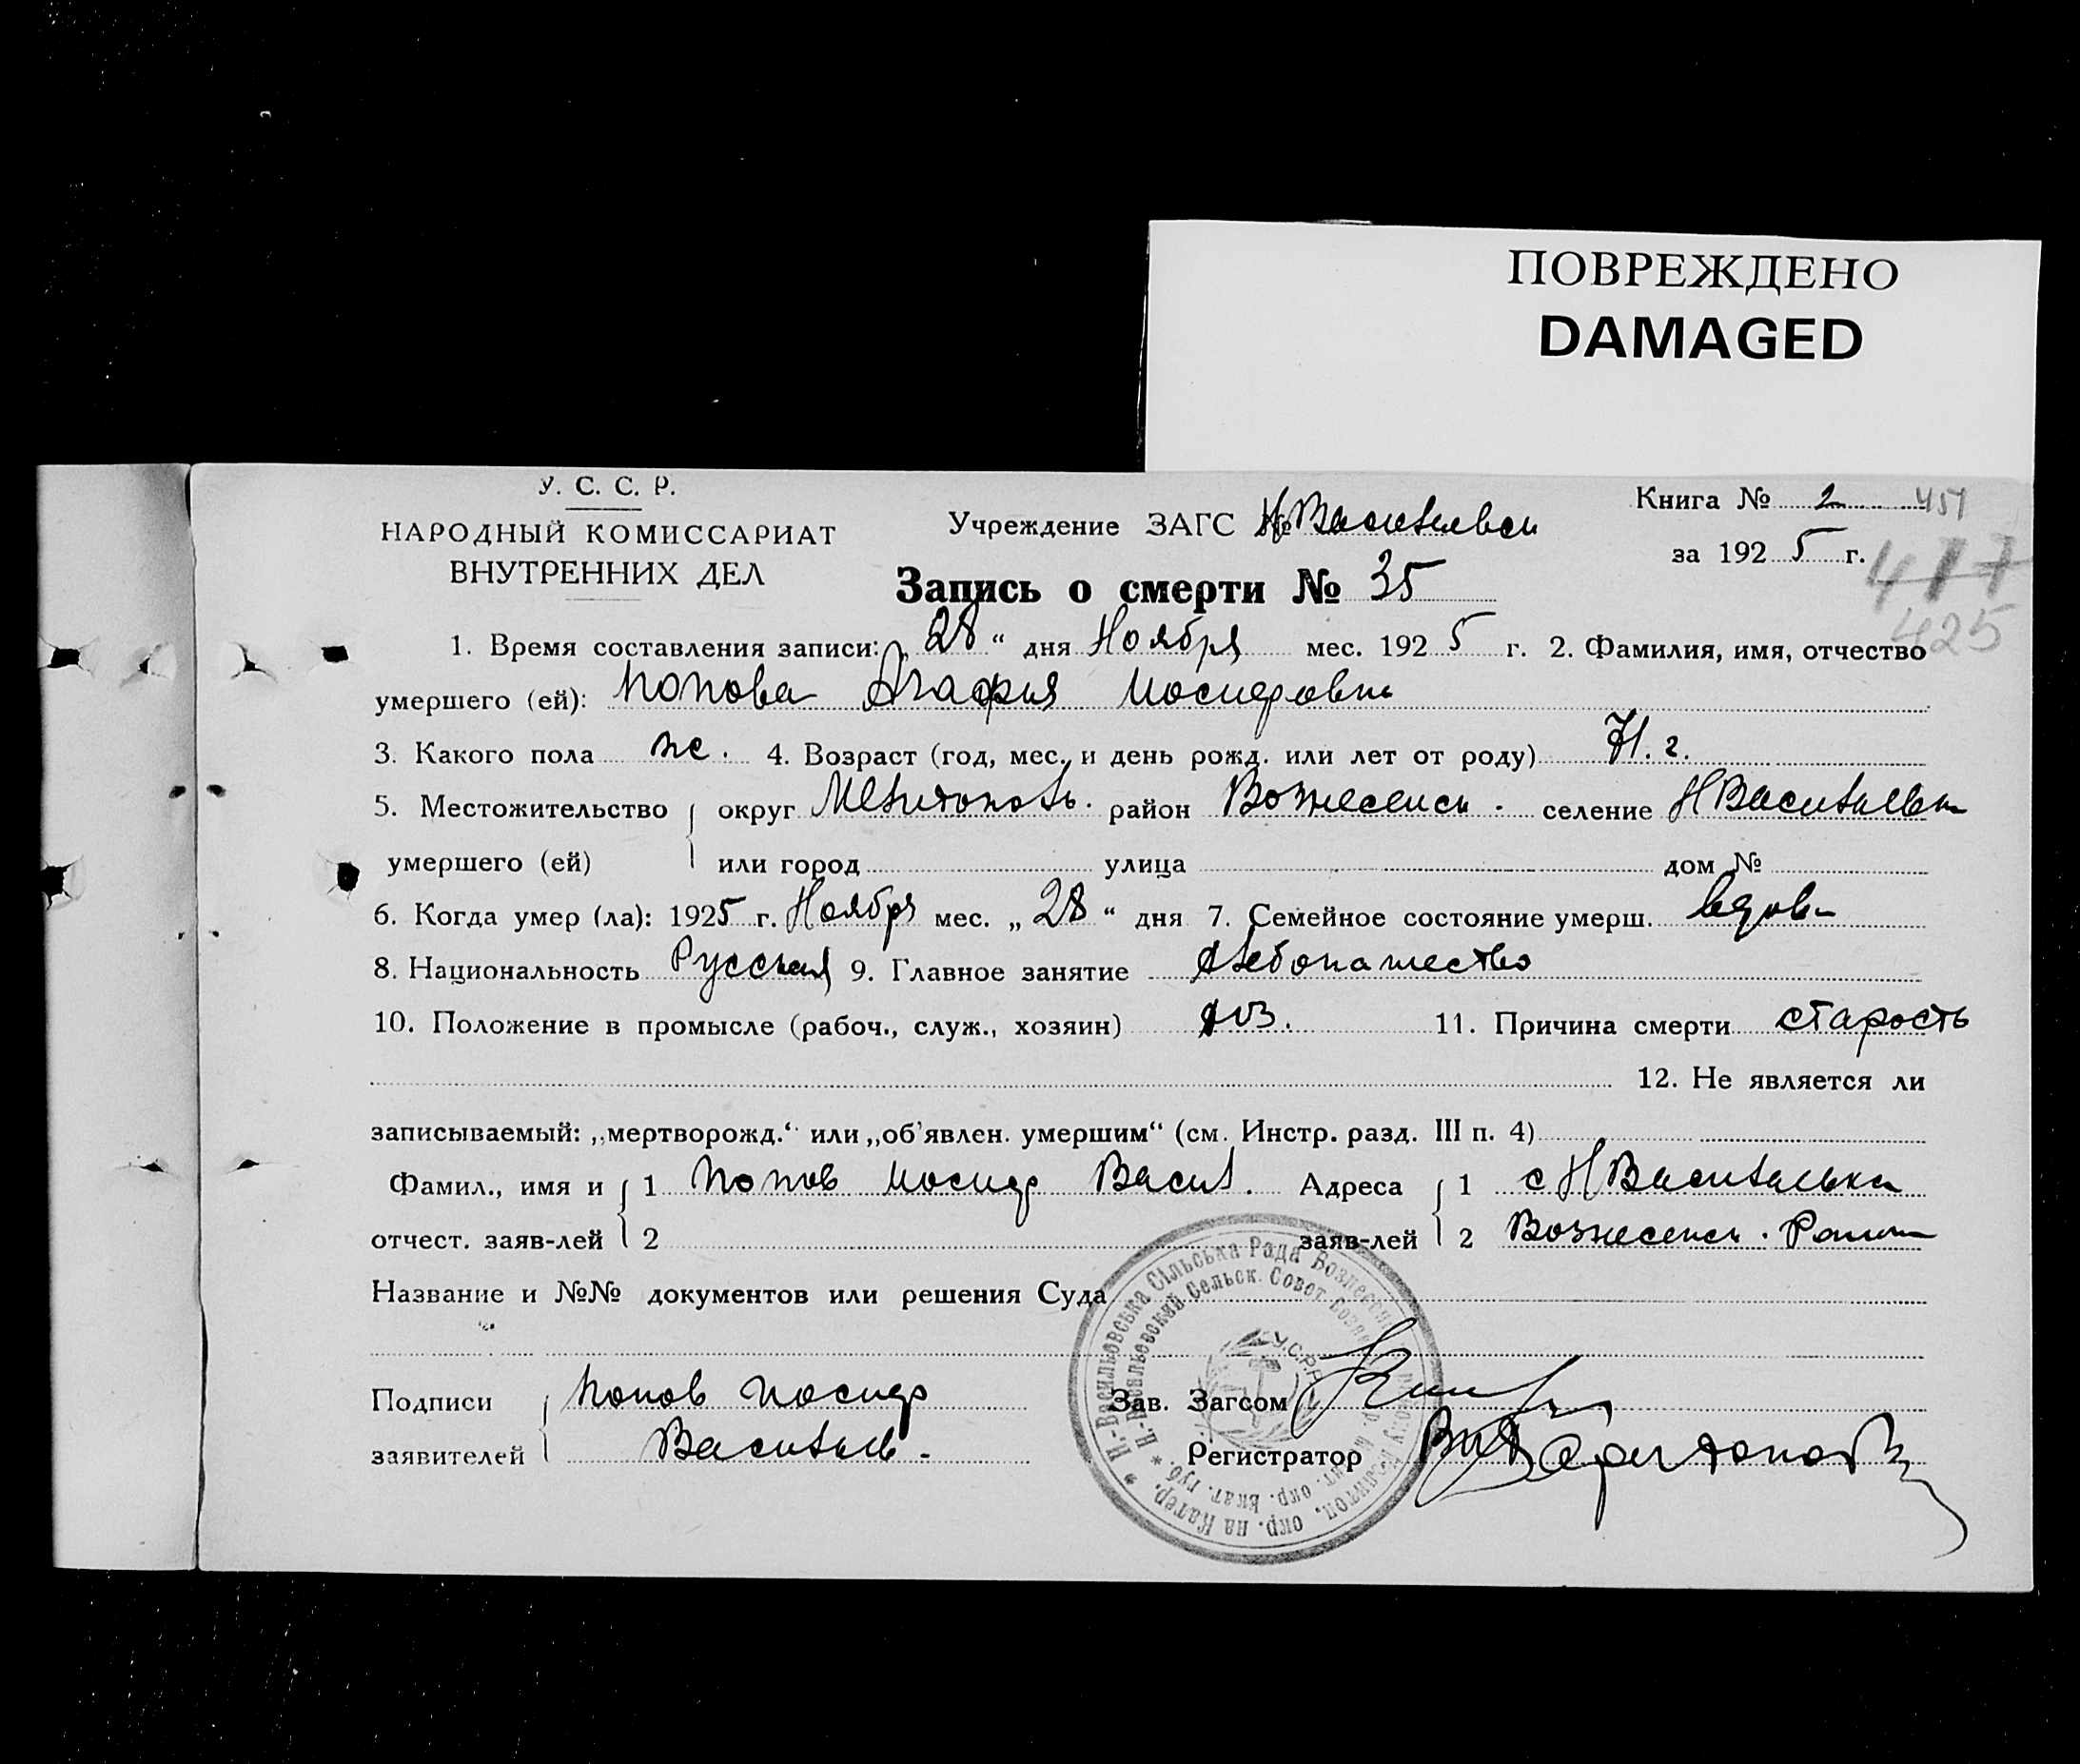 ПОВРЕЖДЕНО
DAMAGED
У. С. С. Р.
НАРОДНЫЙ КОМИССАРИАТ
ВНУТРЕННИХ ДЕЛ
Учреждение ЗАГС № Н Васильевск
Книга № 2 451
за 1925 г. 417
Запись о смерти № 35
425
1. Время составления записи: „28“ дня Ноября мес. 1925 г. 2. Фамилия, имя, отчество
умершего (ей): Попова Агафия Иосифовна
3. Какого пола ж. 4. Возраст (год, мес. и день рожд. или лет от роду) 71. г.
5. Местожительство округ Мелитополь. район Вознесенск. селение Н Васильевка
умершего (ей) или город улица дом №
6. Когда умер (ла): 1925 г. Ноября мес. „28“ дня 7. Семейное состояние умерш. вдова
8. Национальность Русская 9. Главное занятие хлебопашество
10. Положение в промысле (рабоч., служ., хозяин) хоз. 11. Причина смерти старость
12. Не является ли
записываемый: „мертворожд.“ или „об'явлен. умершим“ (см. Инстр. разд. III п. 4)
Фамил., имя и 1 Попов Иосиф Васил. Адреса 1 с Н Василевка
отчест. заяв-лей 2 заяв-лей 2 Вознесенск. Район
Название и №№ документов или решения Суда
Подписи Попов Иосиф Зав. Загсом
заявителей Василь. Регистратор
Н.-Васильовська Сільська Рада Вознесен. окр. на Катер.
Н.-Васильевский Сельск. Совет окр. Екат. губ.
У.С.Р.Р.